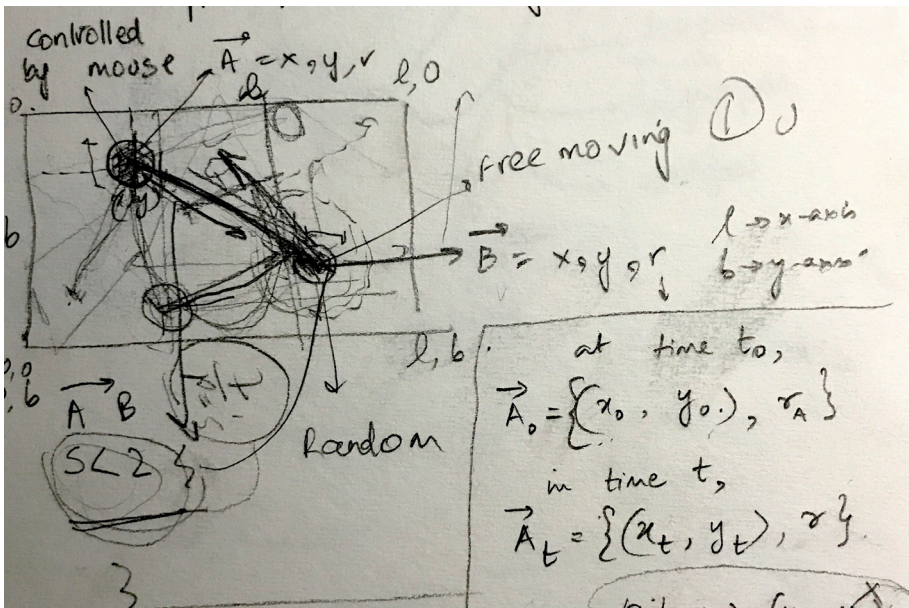 controlled
by mouse
A = x, y, r
l, 0
Free moving ①
B = x, y, r
l → x-axis
b → y-axis
(x, y)
b
l, b
A B
Random
5 < 2 }
}
at time t₀,
A₀ = {(x₀, y₀), r_A}
in time t,
A_t = {(x_t, y_t), r}